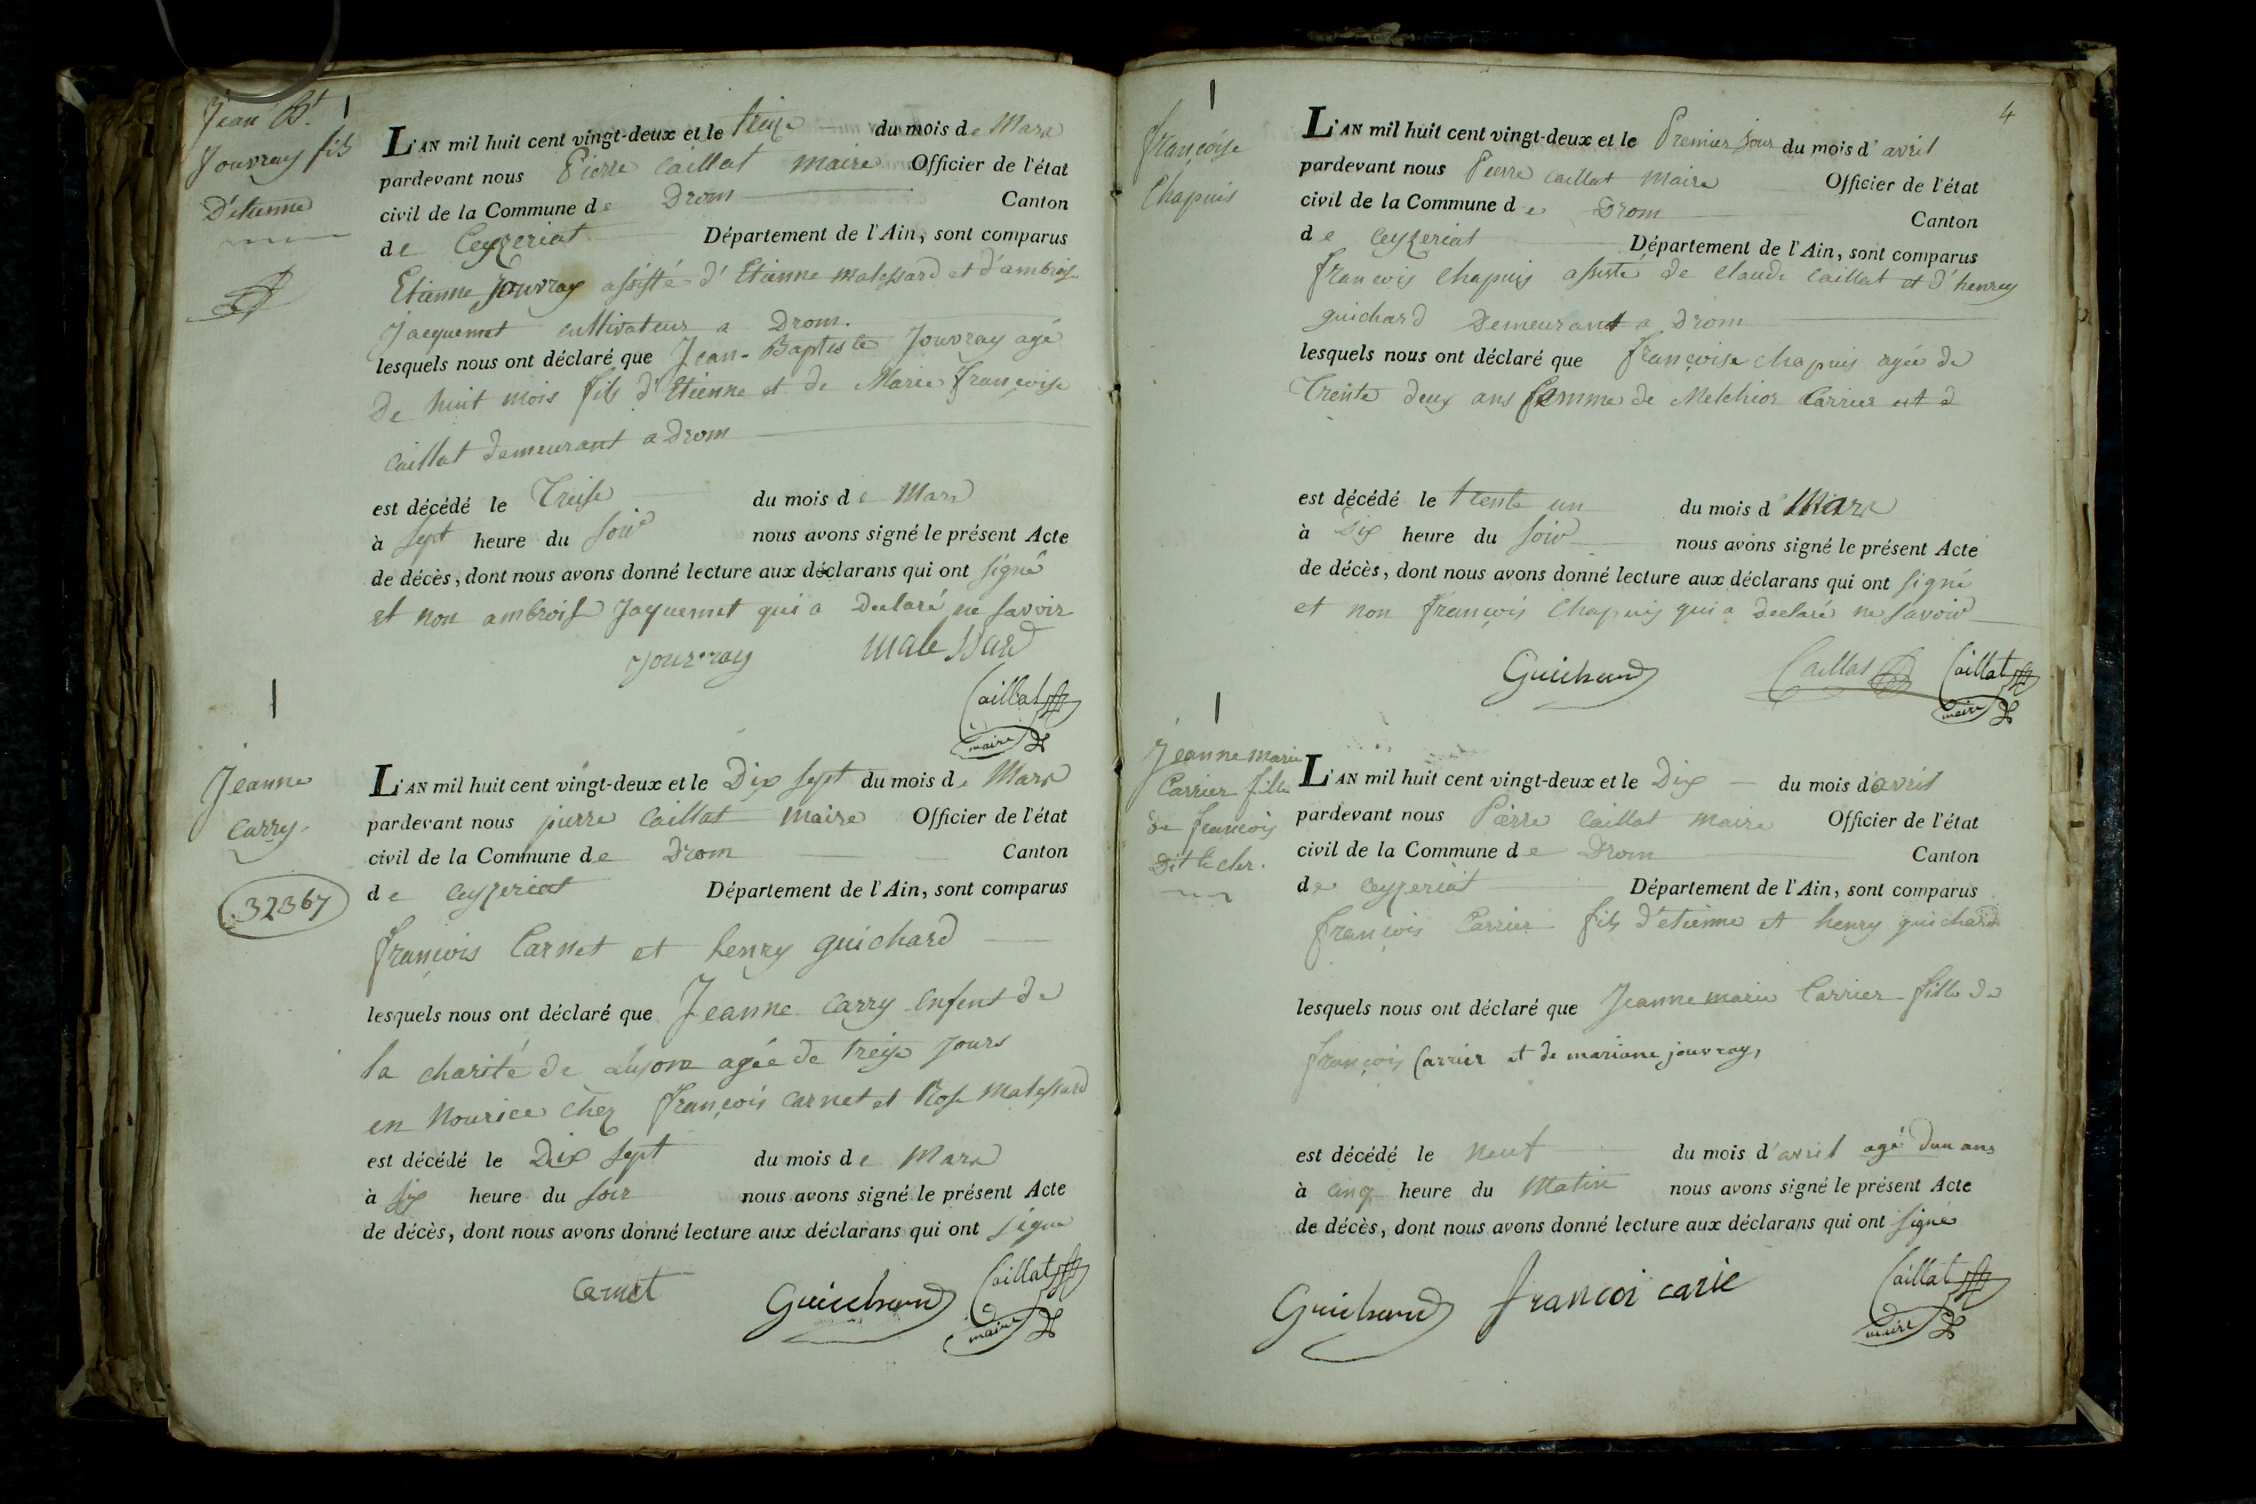 Jean Bt
Jouvray fils
D'etienne
L'AN mil huit cent vingt-deux et le treize du mois de Mars
pardevant nous Pierre Caillat maire Officier de l'état
civil de la Commune de Drom Canton
de Ceyzeriat Département de l'Ain, sont comparus
Etienne Jouvray assisté d'Etienne malessard et d'ambroise
Jacquemet cultivateur a Drom.
lesquels nous ont déclaré que Jean-Baptiste Jouvray agé
De huit mois fils d'Etienne et de Marie Françoise
Caillat demeurant a Drom
est décédé le Treise du mois de Mars
à sept heure du soir nous avons signé le présent Acte
de décès, dont nous avons donné lecture aux déclarans qui ont signé
et non ambroise Jaquemet qui a declaré ne savoir
Jouvray malessard
Caillat
maire
Jeanne
Carry
32367
L'AN mil huit cent vingt-deux et le Dix sept du mois de Mars
pardevant nous pierre Caillat maire Officier de l'état
civil de la Commune de Drom Canton
de Ceyzeriat Département de l'Ain, sont comparus
françois Carnet et henry guichard
lesquels nous ont déclaré que Jeanne Carry enfent de
la charité de Lyon agée de treize jours
en Nourice chez françois Carnet et Rose Malessard
est décédé le Dix sept du mois de Mars
à six heure du soir nous avons signé le présent Acte
de décès, dont nous avons donné lecture aux déclarans qui ont signé
Carnet Guichard Caillat
maire
4
françoise
Chapuis
L'AN mil huit cent vingt-deux et le Premier jour du mois d'avril
pardevant nous Pierre Caillat maire Officier de l'état
civil de la Commune de Drom Canton
de Ceyzeriat Département de l'Ain, sont comparus
françois Chapuis assisté de Claude Caillat et d'henry
guichard Demeurant a Drom
lesquels nous ont déclaré que françoise chapuis agée de
Trente deux ans femme de Melchior Carrier
est décédé le trente un du mois d Mars
à Dix heure du soir nous avons signé le présent Acte
de décès, dont nous avons donné lecture aux déclarans qui ont signé
et non françois Chapuis qui a declaré ne savoir
Guichard Caillat Caillat
maire
Jeanne marie
Carrier fille
de francois
Dit le cler.
L'AN mil huit cent vingt-deux et le Dix du mois d'avril
pardevant nous Pierre Caillat maire Officier de l'état
civil de la Commune de Drom Canton
de Ceyzeriat Département de l'Ain, sont comparus
françois Carrier fils d'etienne et henry guichard
lesquels nous ont déclaré que Jeanne marie Carrier fille de
françois Carrier et de mariane jouvray,
est décédé le neuf du mois d'avril agé dun ans
à cinq heure du Matin nous avons signé le présent Acte
de décès, dont nous avons donné lecture aux déclarans qui ont signé
Guichard francoi carie Caillat
maire